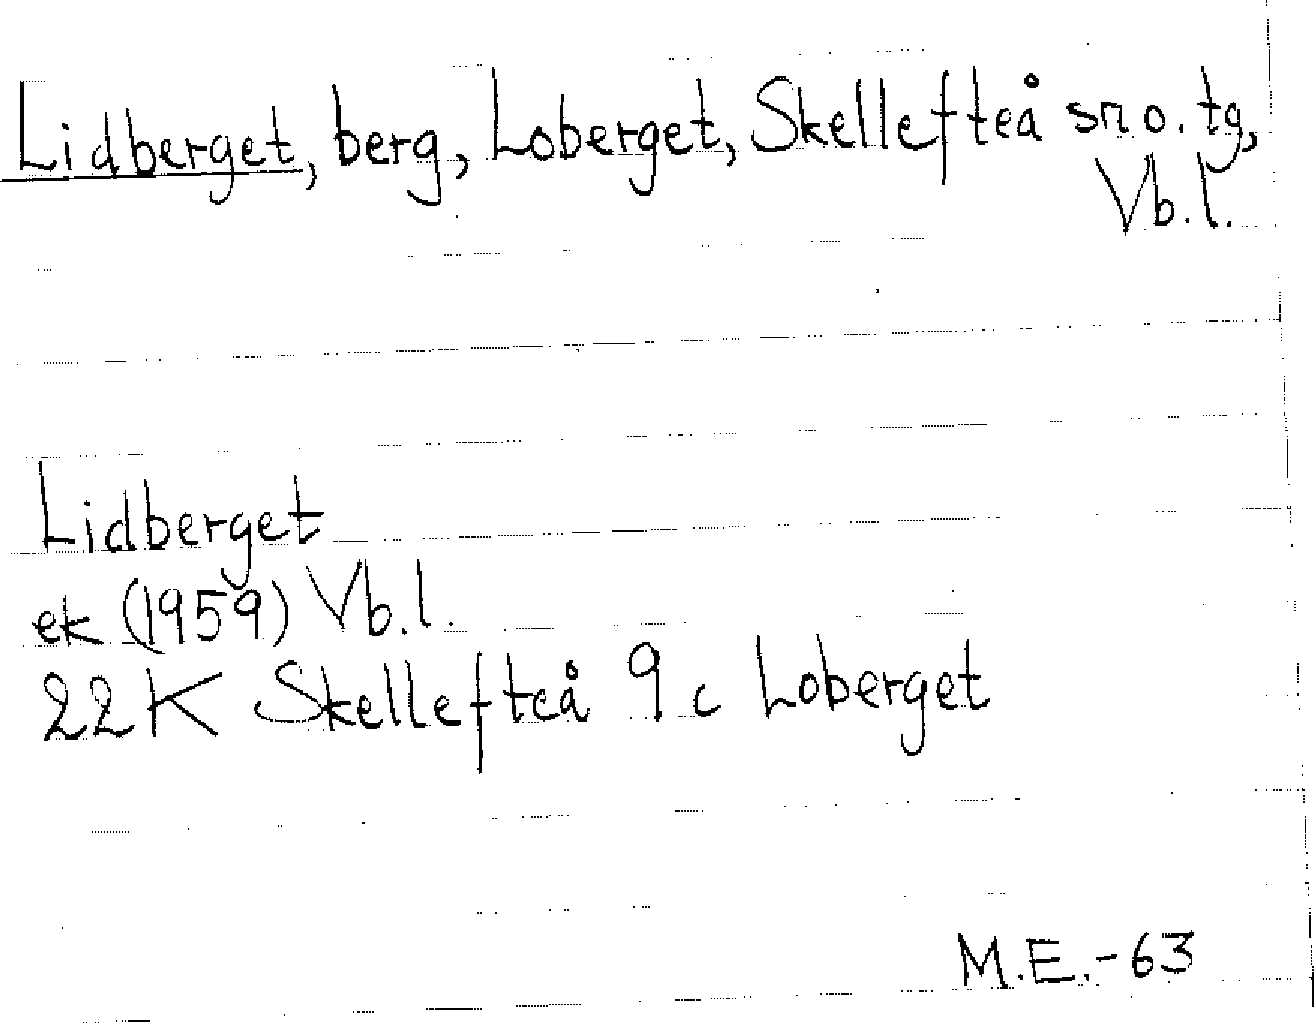 Lidberget, berg, Loberget, Skellefteå sn o. tg,
Vb. l.
Lidberget
ek (1959) Vb. l.
22K Skellefteå 9c Loberget
M.E.-63